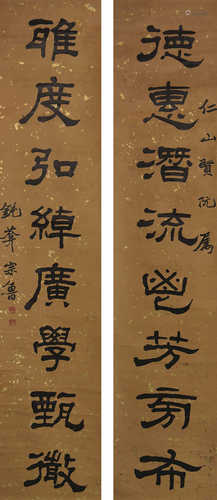 德惠潛流鬯芳旁布
仁山賢阮屬
雅度弘綽廣學甄微
宗魯